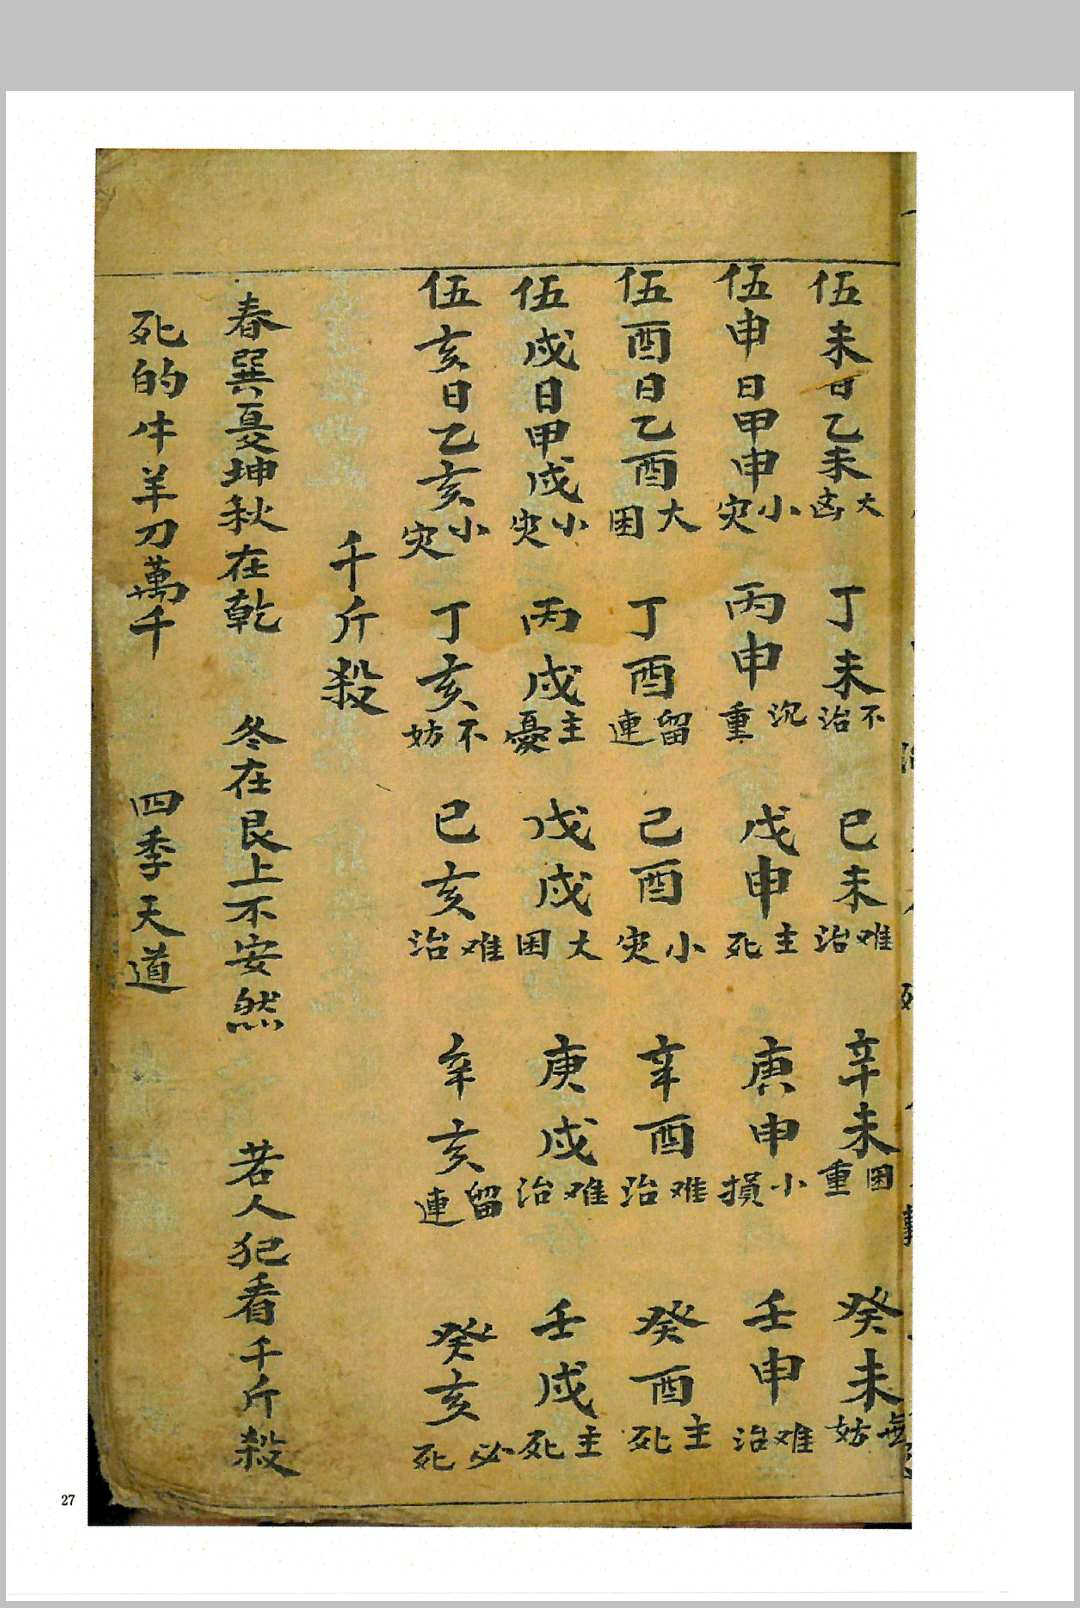 伍未日乙未大凶 丁未不治 已未难治 辛未困重 癸未無妨
伍申日甲申小灾 丙申沉重 戊申主死 庚申小損 壬申难治
伍酉日乙酉大困 丁酉留連 己酉小灾 辛酉难治 癸酉主死
伍戌日甲戌小灾 丙戌主憂 戊戌大困 庚戌难治 壬戌主死
伍亥日乙亥小灾 丁亥不妨 已亥难治 辛亥留連 癸亥必死
千斤殺
春巽夏坤秋在乾 冬在艮上不安然 若人犯看千斤殺
死的牛羊刀萬千 四季天道
27